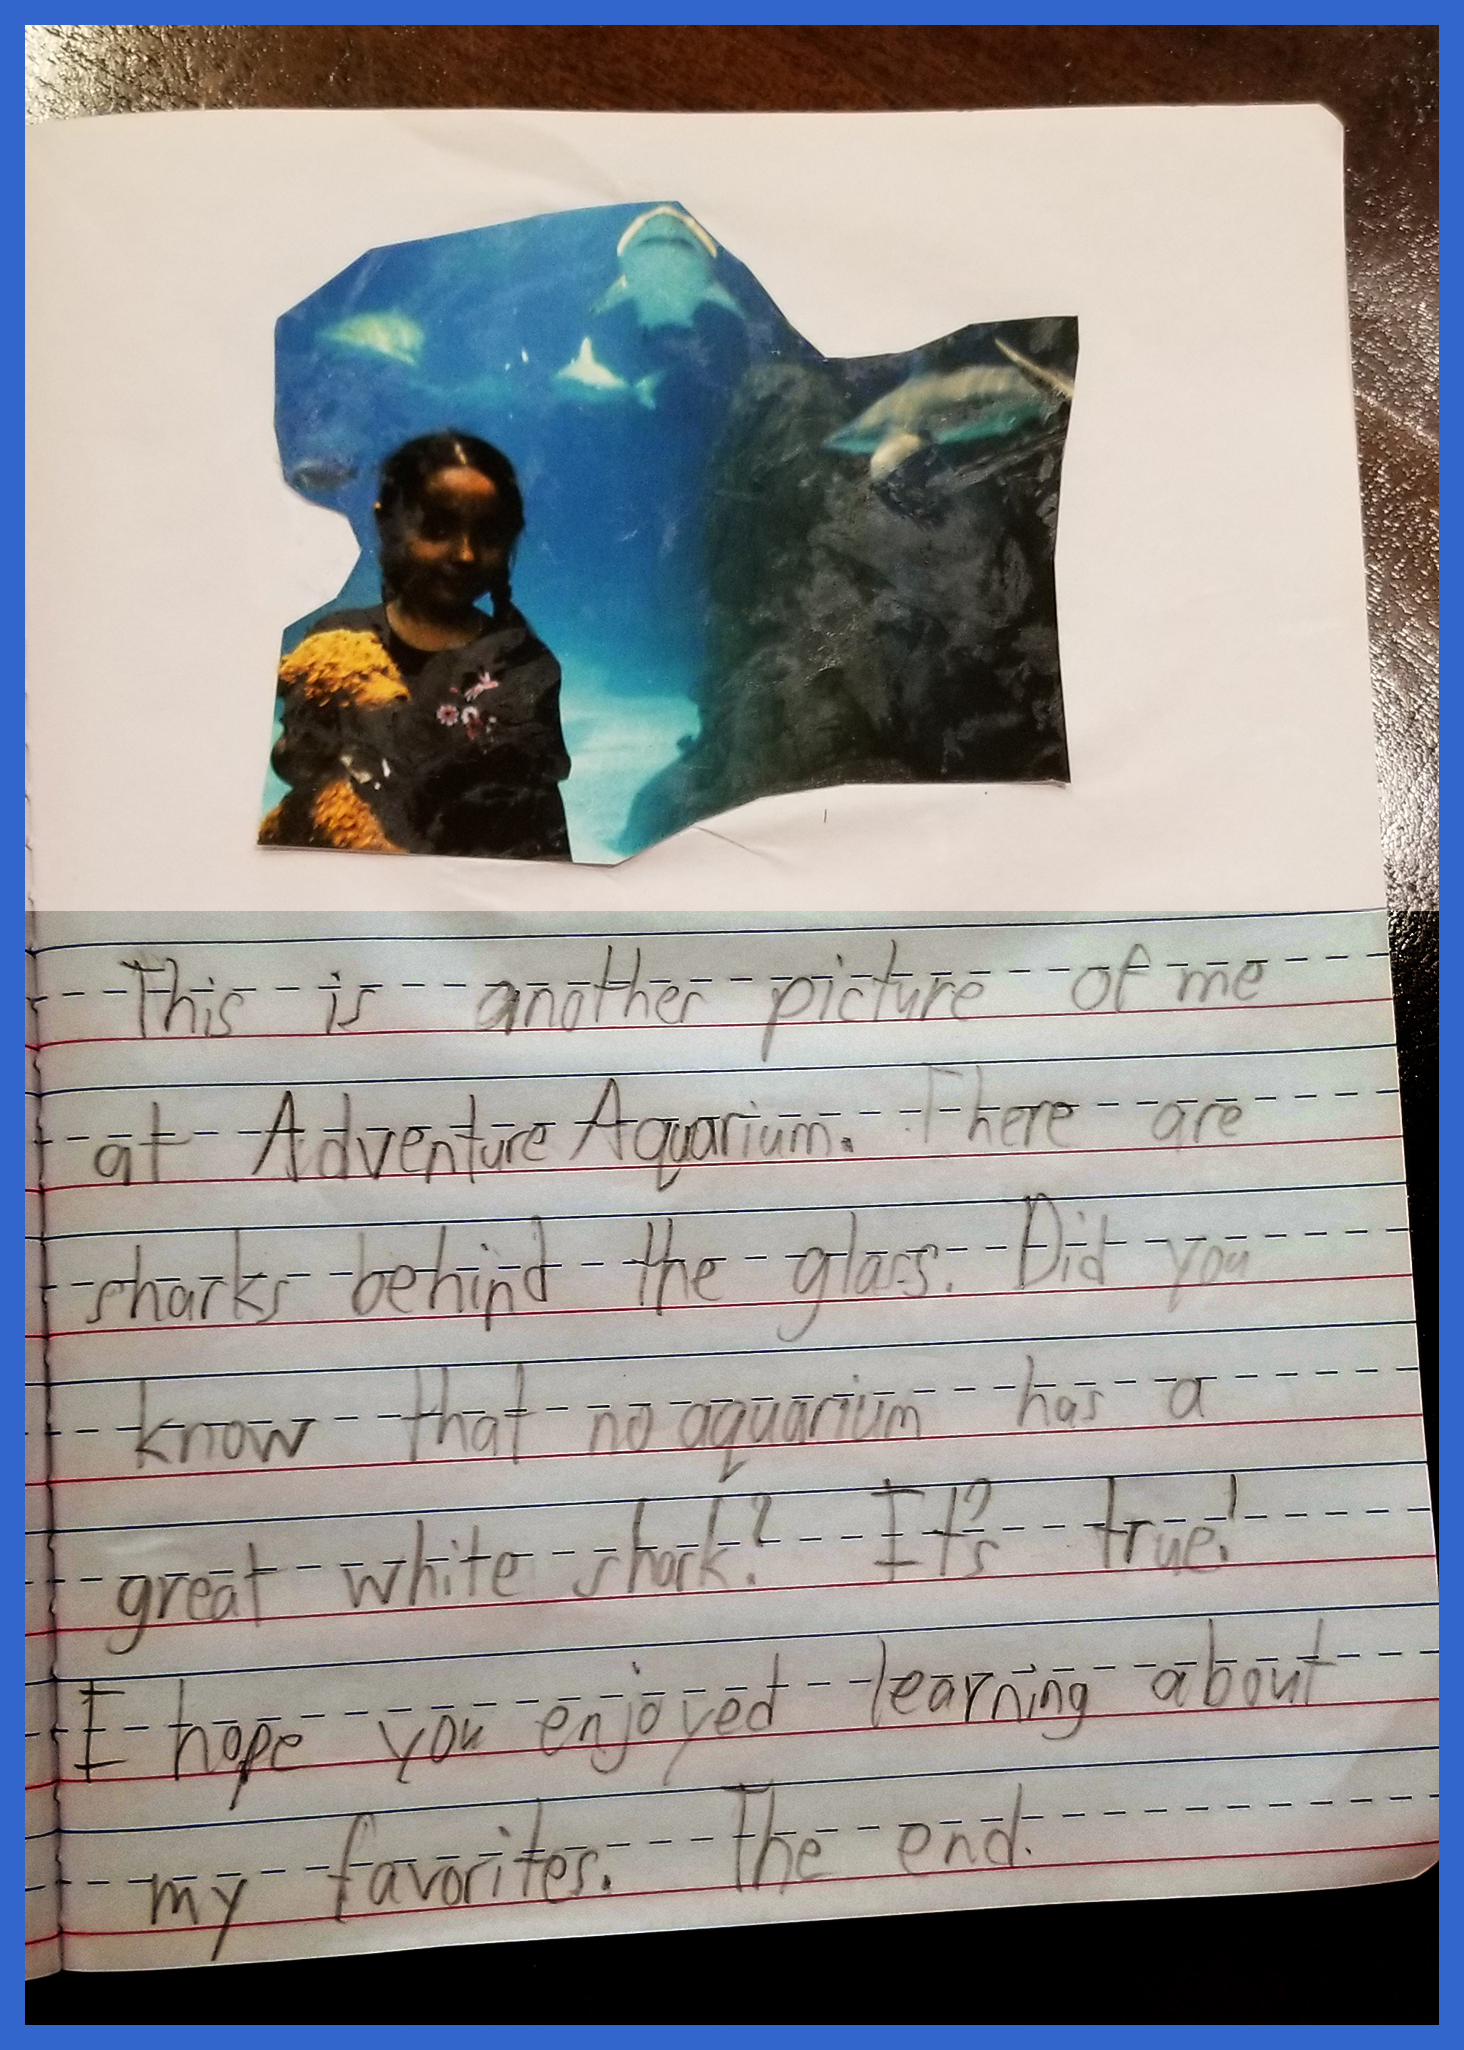 This is another picture of me
at Adventure Aquarium. There are
sharks behind the glass. Did you
know that no aquarium has a
great white shark? It's true!
I hope you enjoyed learning about
my favorites. The end.